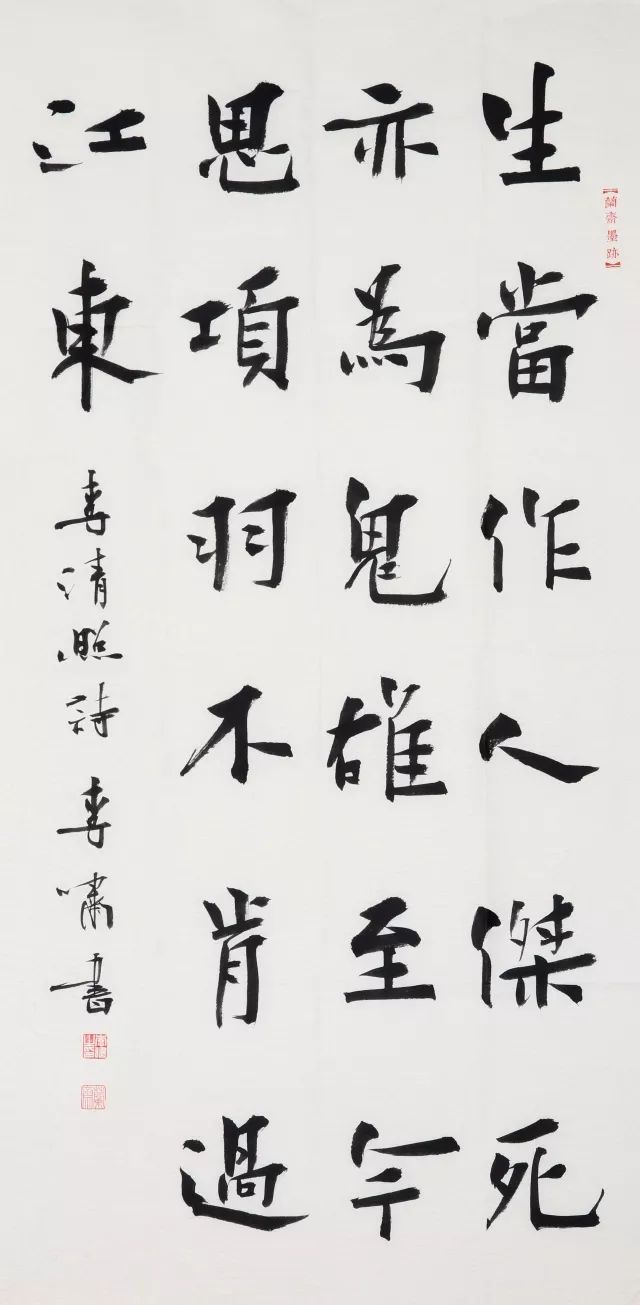 蘭齋墨跡
生當作人傑死
亦為鬼雄至今
思項羽不肯過
江東
李清照詩 李嘯書